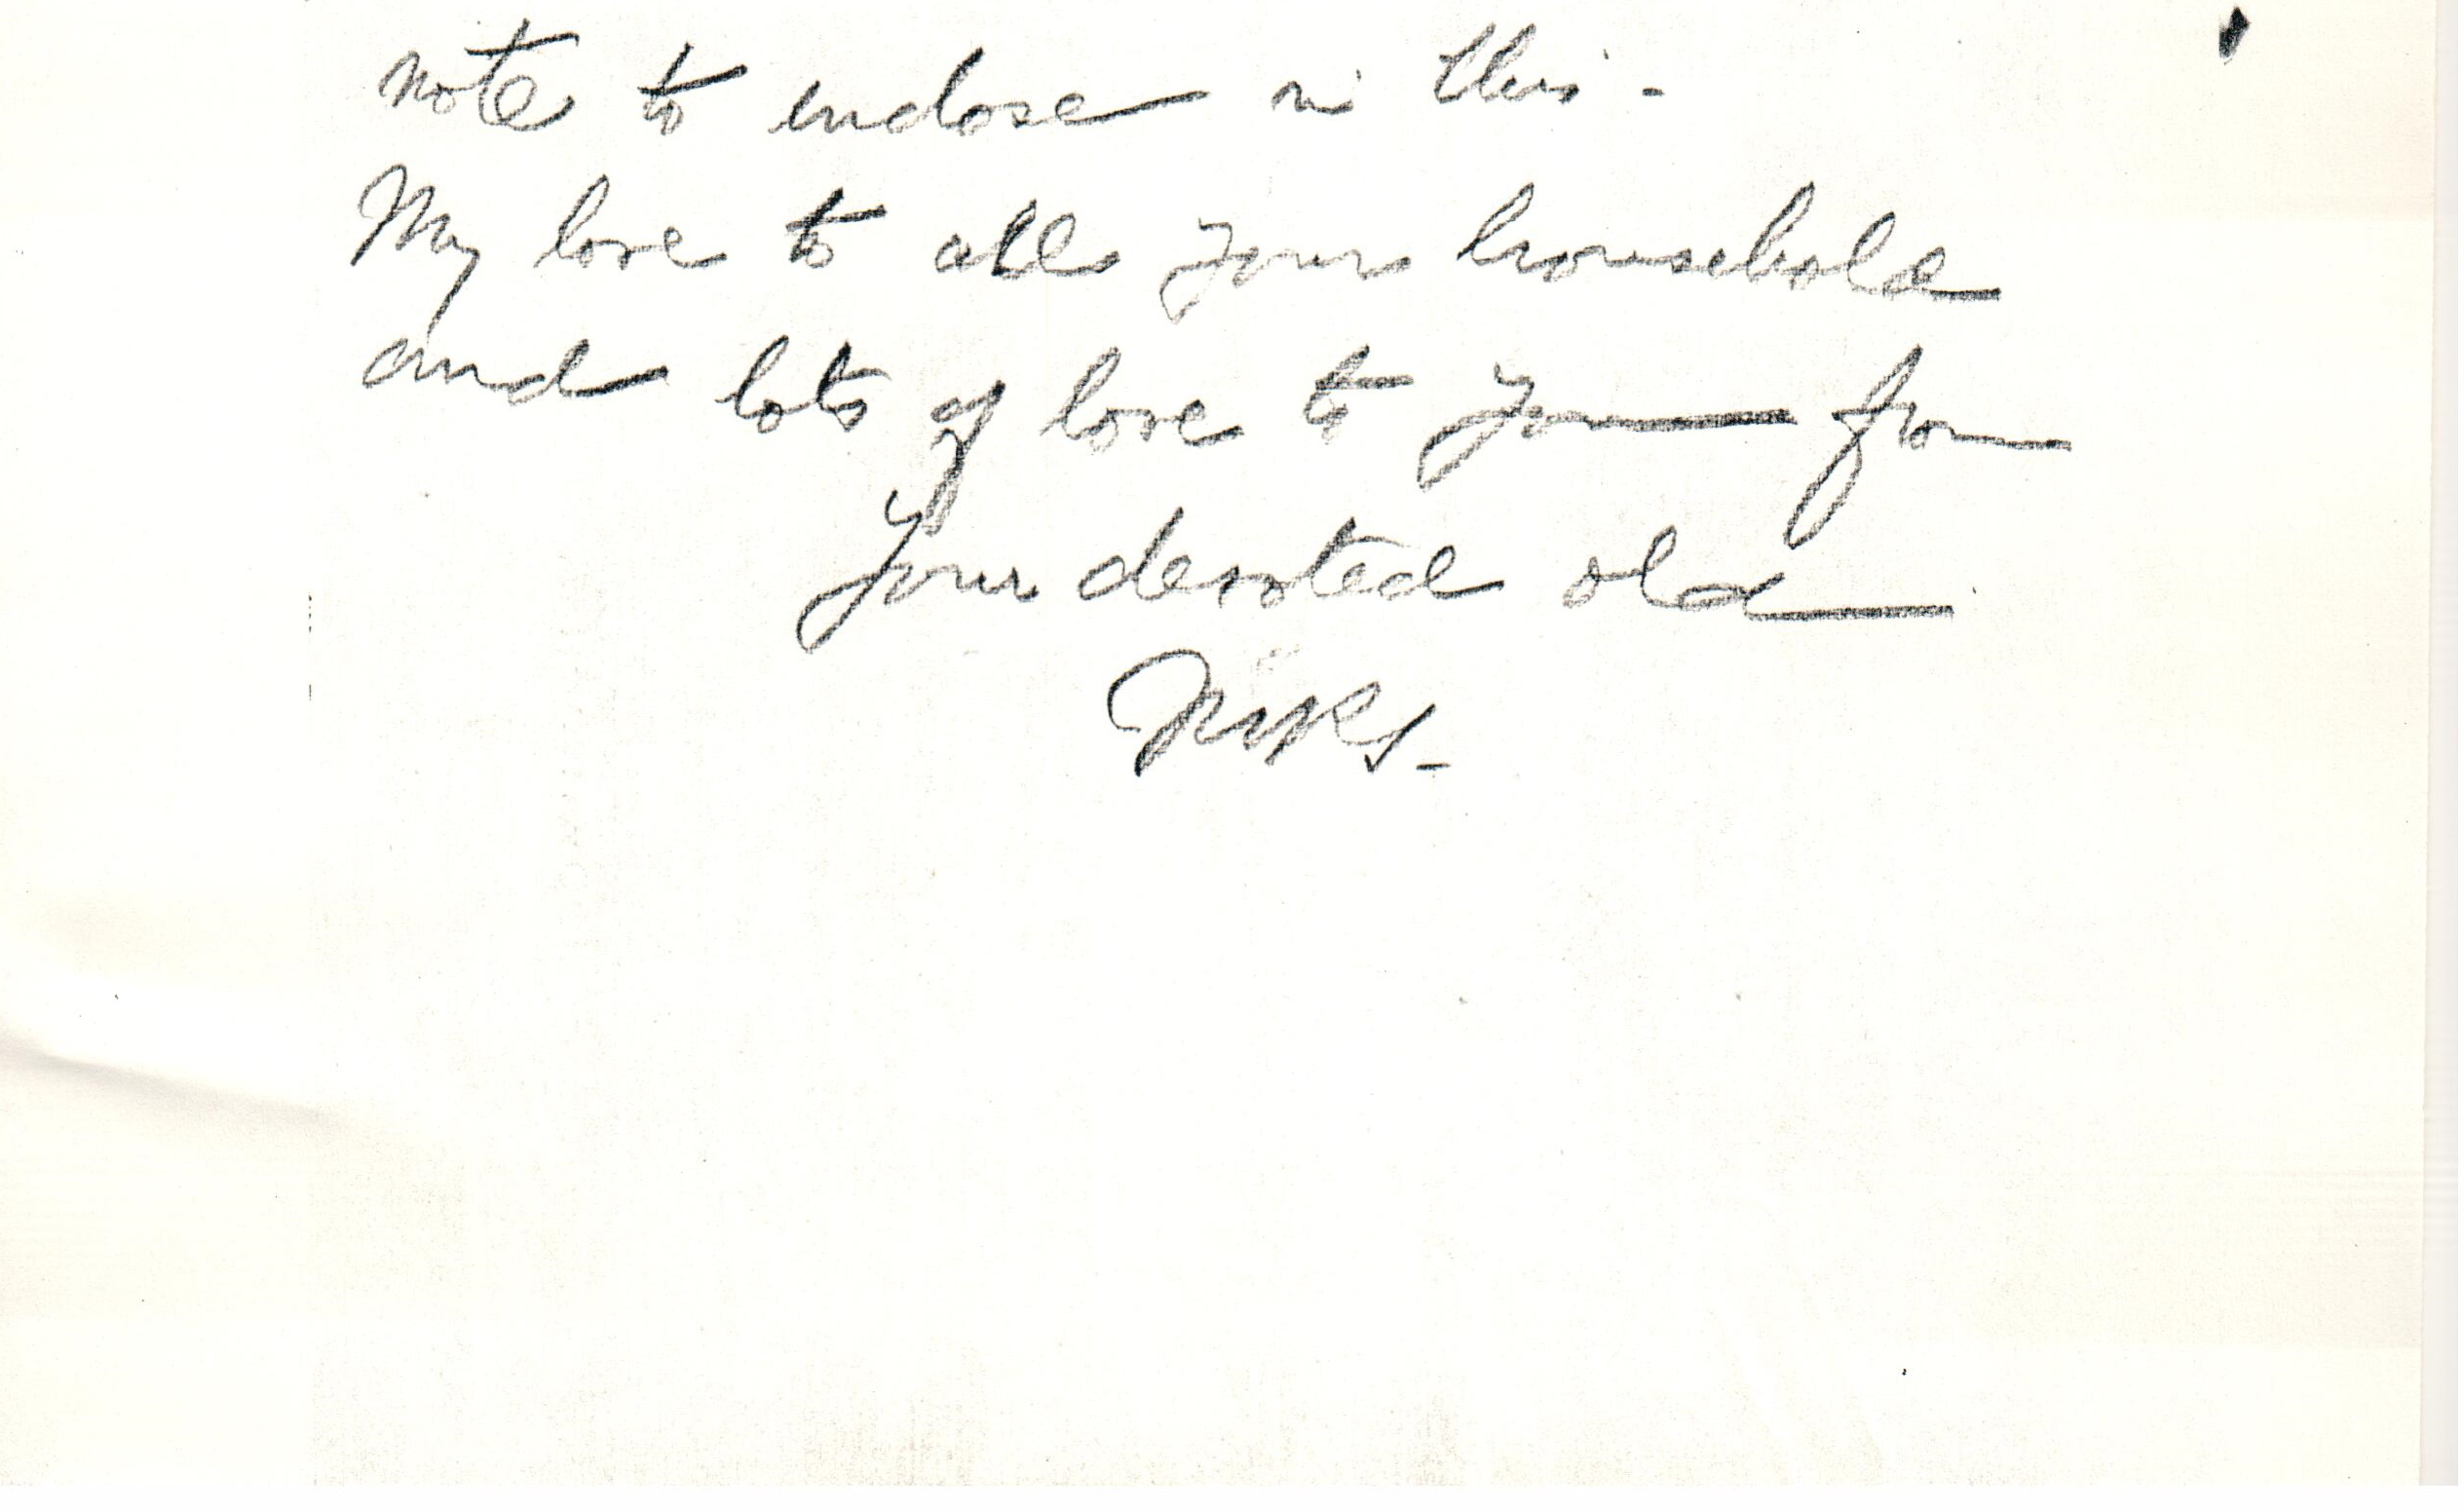 note to enclose in this -
My love to all your household
and lots of love to you from
Your devoted old